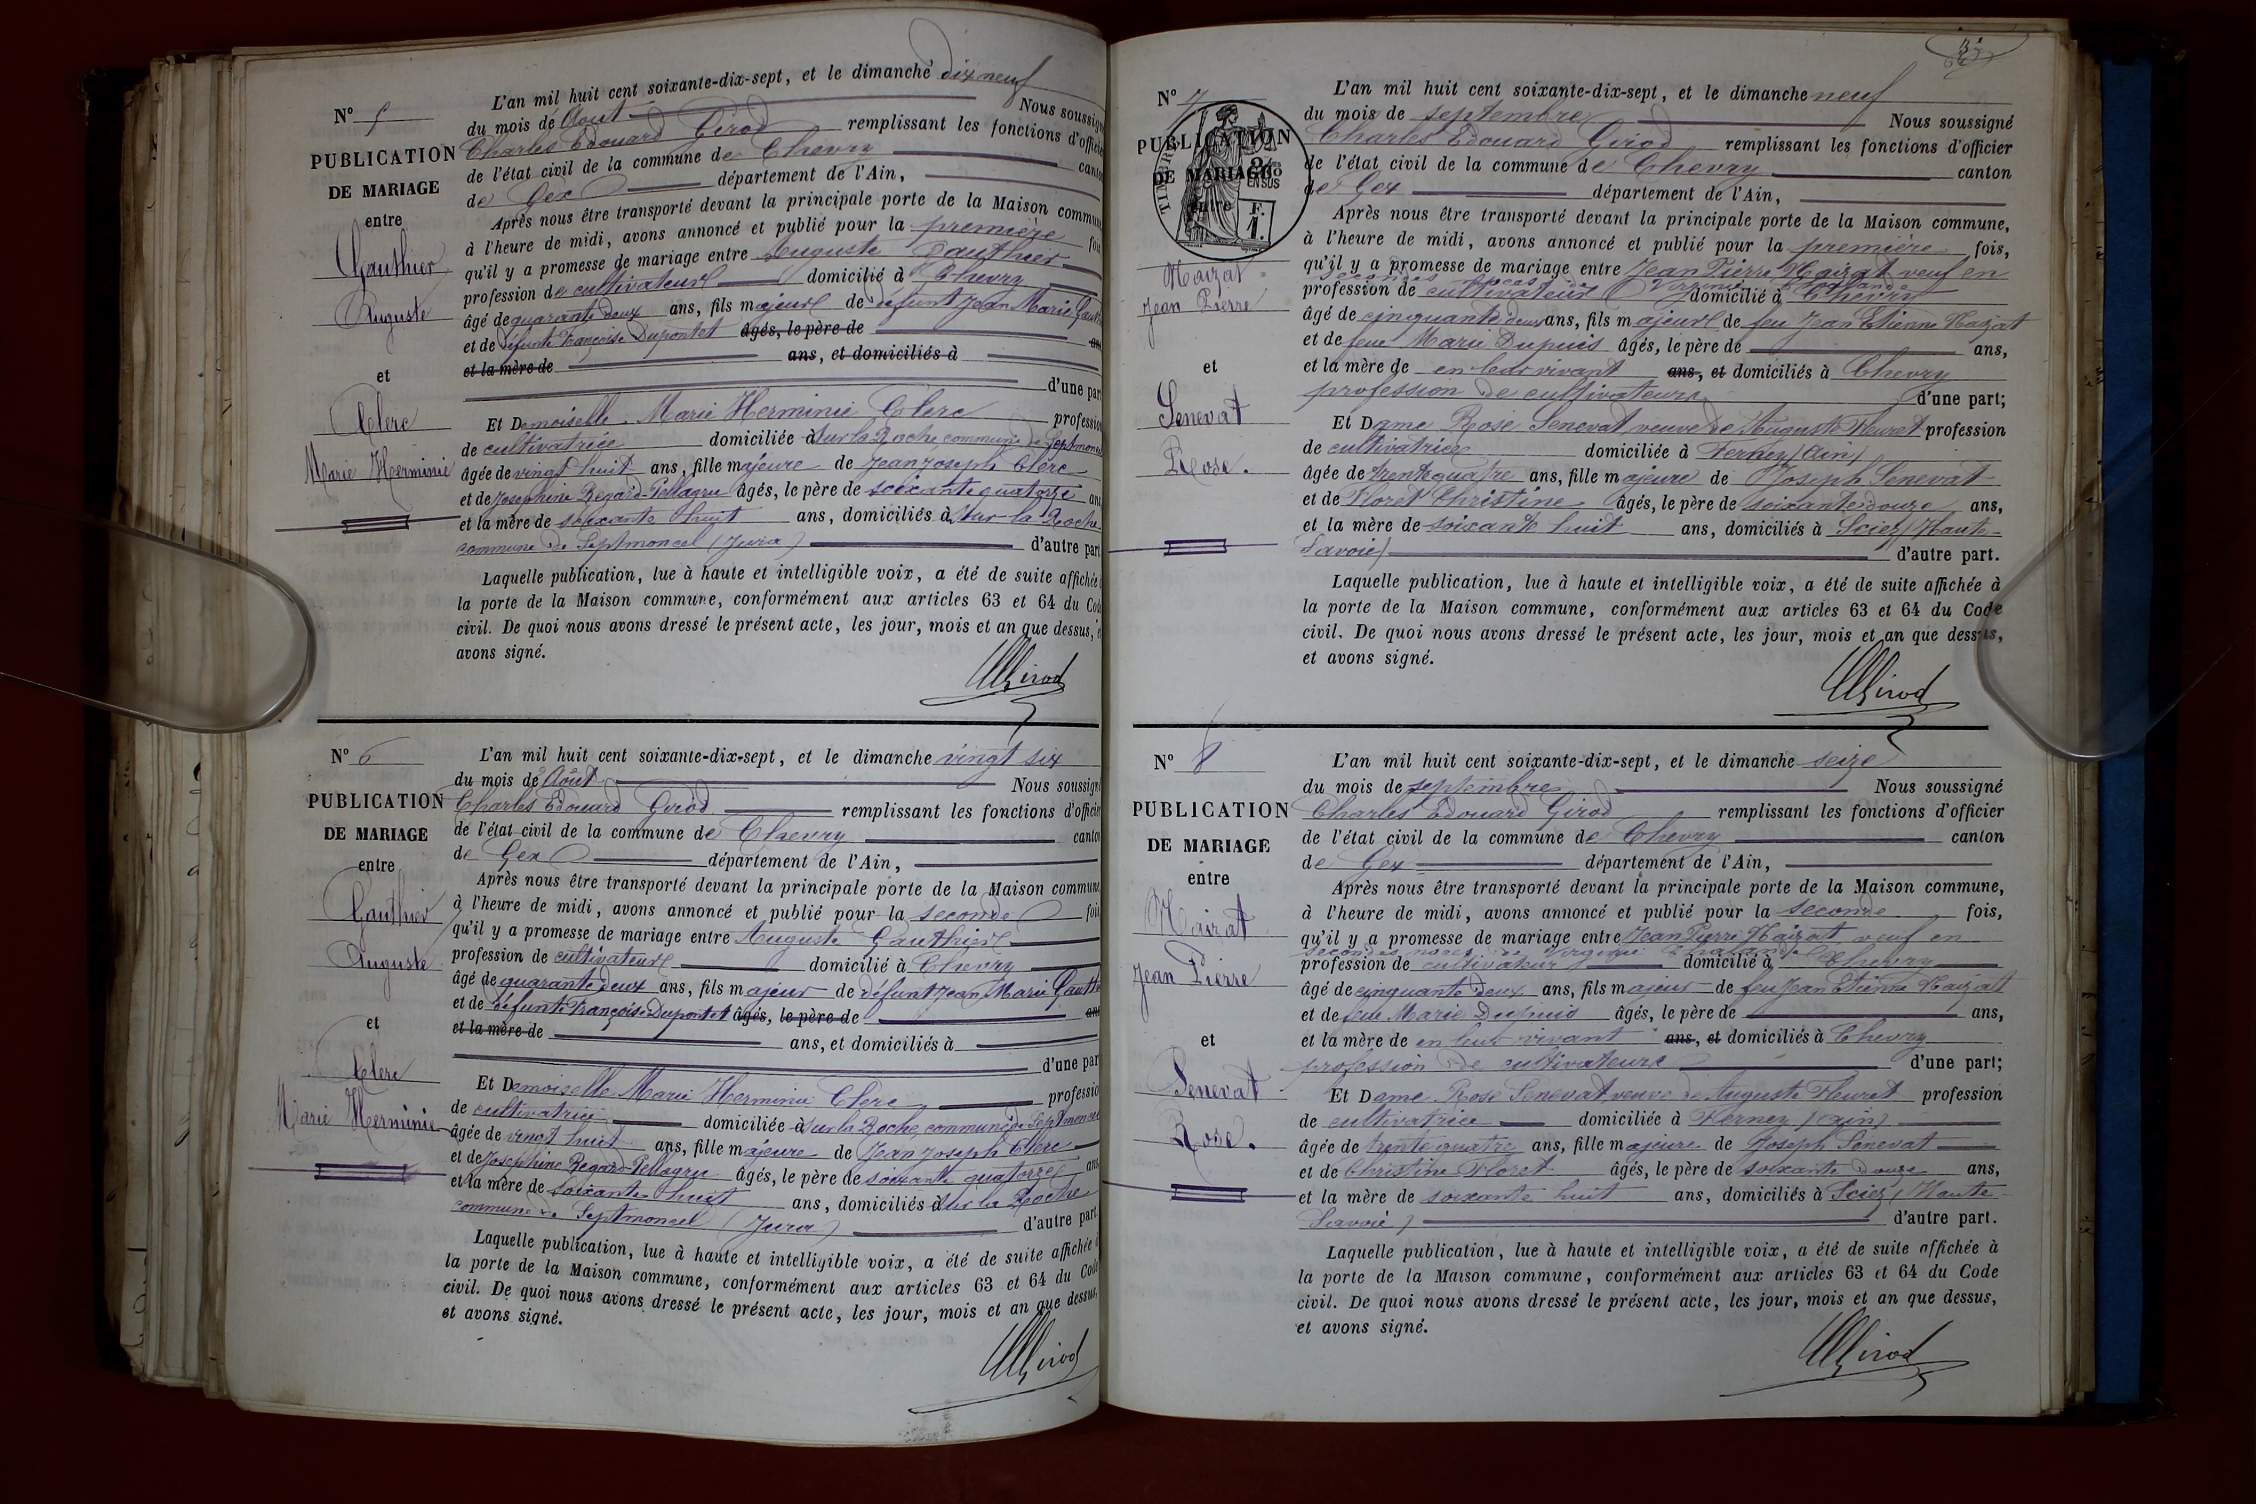 N° 5
PUBLICATION
DE MARIAGE
entre
Gauthier
Auguste
et
Clerc
Marie Herminie
L'an mil huit cent soixante-dix-sept, et le dimanche dix neuf
du mois de Août Nous soussigné
Charles Edouard Girod remplissant les fonctions d'officier
de l'état civil de la commune de Chevry canton
de Gex département de l'Ain,
Après nous être transporté devant la principale porte de la Maison commune,
à l'heure de midi, avons annoncé et publié pour la première fois
qu'il y a promesse de mariage entre Auguste Gauthier
profession de cultivateur domicilié à Chevry
âgé de quarante deux ans, fils majeur de défunt Jean Marie Gauthier
et de défunte Françoise Dupontet âgés, le père de ans
et la mère de ans, et domiciliés à
d'une part
Et Demoiselle Marie Herminie Clerc profession
de cultivatrice domiciliée à Sur la Roche commune de Septmoncel
âgée de vingt huit ans, fille majeure de Jean Joseph Clerc
et de Josephine Regard-Pellagru âgés, le père de soixante quatorze ans
et la mère de soixante huit ans, domiciliés à Sur la Roche
commune de Septmoncel (Jura) d'autre part
Laquelle publication, lue à haute et intelligible voix, a été de suite affichée à
la porte de la Maison commune, conformément aux articles 63 et 64 du Code
civil. De quoi nous avons dressé le présent acte, les jour, mois et an que dessus, et
avons signé.
Girod
N° 6
PUBLICATION
DE MARIAGE
entre
Gauthier
Auguste
et
Clerc
Marie Herminie
L'an mil huit cent soixante-dix-sept, et le dimanche vingt six
du mois de Août Nous soussigné
Charles Edouard Girod remplissant les fonctions d'officier
de l'état civil de la commune de Chevry canton
de Gex département de l'Ain,
Après nous être transporté devant la principale porte de la Maison commune,
à l'heure de midi, avons annoncé et publié pour la seconde fois
qu'il y a promesse de mariage entre Auguste Gauthier
profession de cultivateur domicilié à Chevry
âgé de quarante deux ans, fils majeur de défunt Jean Marie Gauthier
et de défunte Françoise Dupontet âgés, le père de ans
et la mère de ans, et domiciliés à
d'une part
Et Demoiselle Marie Herminie Clerc profession
de cultivatrice domiciliée à Sur la Roche, commune de Septmoncel
âgée de vingt huit ans, fille majeure de Jean Joseph Clerc
et de Josephine Regard-Pellagru âgés, le père de soixante quatorze ans
et la mère de soixante huit ans, domiciliés à Sur la Roche
commune de Septmoncel (Jura) d'autre part.
Laquelle publication, lue à haute et intelligible voix, a été de suite affichée à
la porte de la Maison commune, conformément aux articles 63 et 64 du Code
civil. De quoi nous avons dressé le présent acte, les jour, mois et an que dessus,
et avons signé.
Girod
N° 7
PUBLICATION
DE MARIAGE
entre
TIMBRE
EN SUS
F.
1.
Maizat
Jean Pierre
et
Senevat
Rose.
L'an mil huit cent soixante-dix-sept, et le dimanche neuf
du mois de septembre Nous soussigné
Charles Edouard Girod remplissant les fonctions d'officier
de l'état civil de la commune de Chevry canton
de Gex département de l'Ain,
Après nous être transporté devant la principale porte de la Maison commune,
à l'heure de midi, avons annoncé et publié pour la première fois,
qu'il y a promesse de mariage entre Jean Pierre Maizat veuf en
secondes noces de Virginie
profession de cultivateur domicilié à Chevry
âgé de cinquante deux ans, fils majeur de feu Jean Etienne Maizat
et de feue Marie Dupuis âgés, le père de ans,
et la mère de en leur vivant ans, et domiciliés à Chevry
profession de cultivateurs d'une part;
Et Dame Rose Senevat veuve de Auguste Fleuret profession
de cultivatrice domiciliée à Ferney (Ain)
âgée de trente quatre ans, fille majeure de Joseph Senevat
et de Floret Christine âgés, le père de soixante douze ans,
et la mère de soixante huit ans, domiciliés à Sciez (Haute-
Savoie) d'autre part.
Laquelle publication, lue à haute et intelligible voix, a été de suite affichée à
la porte de la Maison commune, conformément aux articles 63 et 64 du Code
civil. De quoi nous avons dressé le présent acte, les jour, mois et an que dessus,
et avons signé.
Girod
N° 8
PUBLICATION
DE MARIAGE
entre
Maizat
Jean Pierre
et
Senevat
Rose.
L'an mil huit cent soixante-dix-sept, et le dimanche seize
du mois de septembre Nous soussigné
Charles Edouard Girod remplissant les fonctions d'officier
de l'état civil de la commune de Chevry canton
de Gex département de l'Ain,
Après nous être transporté devant la principale porte de la Maison commune,
à l'heure de midi, avons annoncé et publié pour la seconde fois,
qu'il y a promesse de mariage entre Jean Pierre Maizat veuf en
secondes noces de Virginie
profession de cultivateur domicilié à Chevry
âgé de cinquante deux ans, fils majeur de feu Jean Etienne Maizatt
et de feue Marie Dupuis âgés, le père de ans,
et la mère de en leur vivant ans, et domiciliés à Chevry
profession de cultivateurs d'une part;
Et Dame Rose Senevat veuve de Auguste Fleuret profession
de cultivatrice domiciliée à Ferney (Ain)
âgée de trente quatre ans, fille majeure de Joseph Senevat
et de Christine Floret âgés, le père de soixante douze ans,
et la mère de soixante huit ans, domiciliés à Sciez (Haute
Savoie) d'autre part.
Laquelle publication, lue à haute et intelligible voix, a été de suite affichée à
la porte de la Maison commune, conformément aux articles 63 et 64 du Code
civil. De quoi nous avons dressé le présent acte, les jour, mois et an que dessus,
et avons signé.
Girod